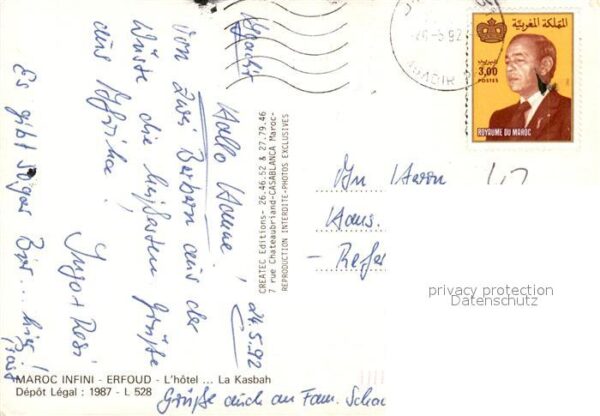 Hallo Hanne!
24.5.92
Von zwei Barbaren aus der
Wüste die heißesten Grüße
aus Afrika!
Ingo + Resi
Es gibt sogar Bier... hier!
Grüße auch an Fam.
CREATEC Editions- 26.46.52 & 27.79.46
7 rue Chateaubriand-CASABLANCA Maroc-
REPRODUCTION INTERDITE-PHOTOS EXCLUSIVES
المملكة المغربية
3,00
POSTES
ROYAUME DU MAROC
An Herrn
Hans
privacy protection
Datenschutz
MAROC INFINI - ERFOUD - L'hôtel ... La Kasbah
Dépôt Légal : 1987 - L 528